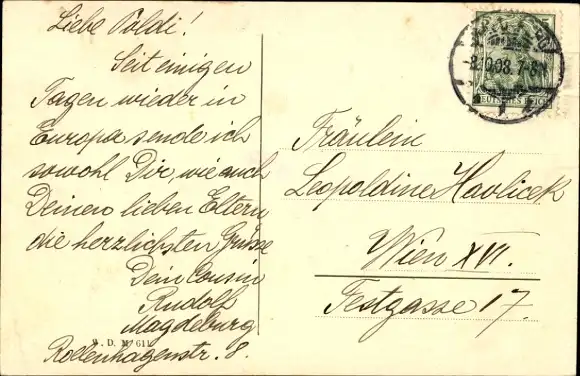 Liebe Poldi!
Seit einigen
Tagen wieder in
Europa sende ich
sowohl Dir, wie auch
Deinen lieben Eltern
die herzlichsten Grüsse
Dein Cousin
Rudolf
Magdeburg
Rollenhagenstr. 8.
W. D. M/611
-8.10.08. 7-8N
DEUTSCHES REICH
Fräulein
Leopoldine Havlicek
Wien XVI.
Festgasse 17.